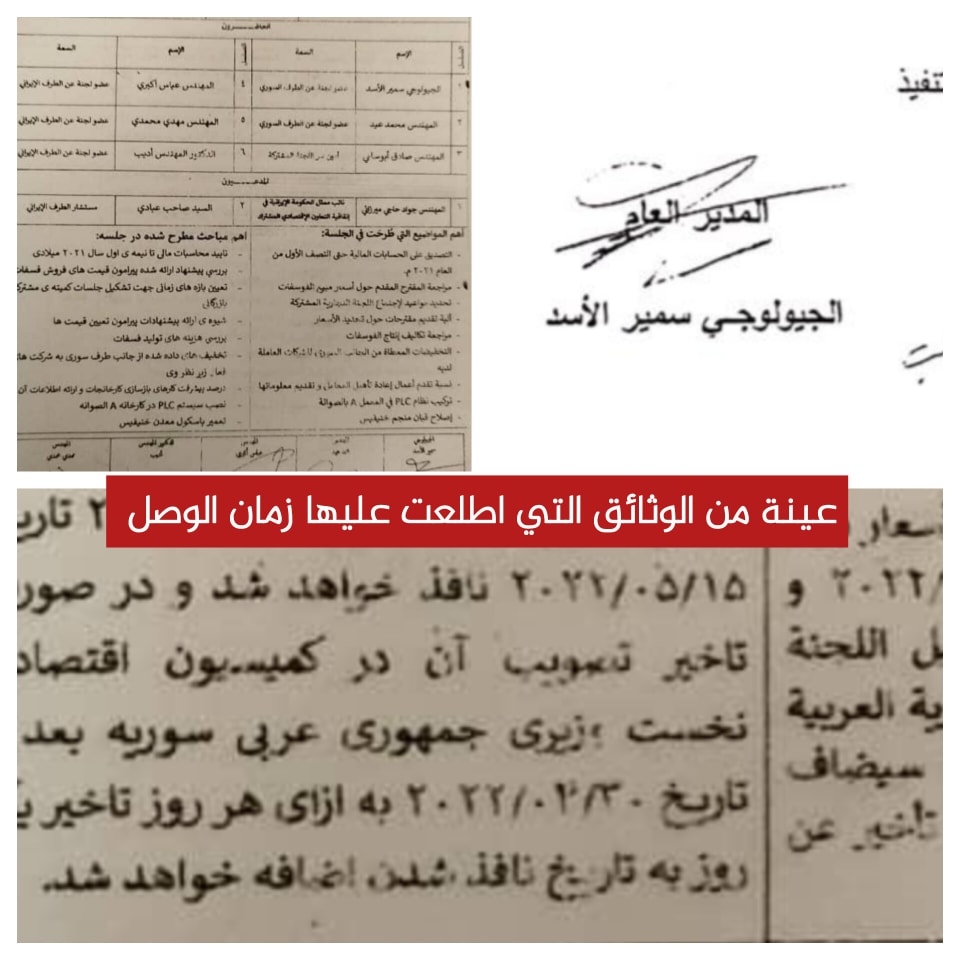 الحاضـــــرون
التسلسل الإسم السمة التسلسل الإسم السمة
١ الجيولوجي سمير الأسد عضو لجنة عن الطرف السوري ٤ المهندس عباس أكبري عضو لجنة عن الطرف الإيراني
٢ المهندس محمد عيد عضو لجنة عن الطرف السوري ٥ المهندس مهدي محمدي عضو لجنة عن الطرف الإيراني
٣ المهندس صادق أبوساي أمين سر اللجنة المشتركة ٦ الدكتور المهندس أديب عضو لجنة عن الطرف الإيراني
المدعـــــيون
١ المهندس جواد حاجي ميرزائي نائب ممثل الحكومة الإيرانية في إتفاقية التعاون الإقتصادي المشترك ٢ السيد صاحب عبادي مستشار الطرف الإيراني
أهم المواضيع التي طُرحت في الجلسة:
- التصديق على الحسابات المالية حتى النصف الأول من
العام ٢٠٢١ م.
- مراجعة المقترح المقدم حول أسعار مبيع الفوسفات
- تحديد مواعيد لإجتماع اللجنة التجارية المشتركة
- آلية تقديم مقترحات حول تحديد الأسعار
- مراجعة تكاليف إنتاج الفوسفات
- التخفيضات المعطاة من الجانب السوري للشركات العاملة
لديه
- نسبة تقدم أعمال إعادة تأهيل المعامل و تقديم معلوماتها
- تركيب نظام PLC في المعمل A بالصوانة
- إصلاح قبان منجم خنيفيس
اهم مباحث مطرح شده در جلسه:
- تایید محاسبات مالی تا نیمه ی اول سال ٢٠٢١ میلادی
- بررسی پیشنهاد ارائه شده پیرامون قیمت های فروش فسفات
- تعیین بازه های زمانی جهت تشکیل جلسات کمیته ی مشترک
بازرگانی
- شیوه ی ارائه پیشنهادات پیرامون تعیین قیمت ها
- بررسی هزینه های تولید فسفات
- تخفیف های داده شده از جانب طرف سوری به شرکت های
فعال زیر نظر وی
- درصد پیشرفت کارهای بازسازی کارخانجات و ارائه اطلاعات آن
- نصب سیستم PLC در کارخانه A الصوانه
- تعمیر باسکول معدن خنیفیس
الجيولوجي المهندس المهندس الدكتور المهندس المهندس
سمير الأسد عباس أكبري أديب مهدي محمدي
تنفيذ
المدير العام
الجيولوجي سمير الأسد
عينة من الوثائق التي اطلعت عليها زمان الوصل
أسعار
/٢٠٢٢ و
اللجنة
العربية
سيضاف
تأخير عن
٢ تاري
٢٠٢٢/٠٥/١٥ نافذ خواهد شد و در صور
تاخیر تصویب آن در کمیسیون اقتصاد
نخست وزیری جمهوری عربی سوریه بعد
تاریخ ٢٠٢٢/٠٤/٣٠ به ازای هر روز تاخیر یک
روز به تاریخ نافذ شدن اضافه خواهد شد.